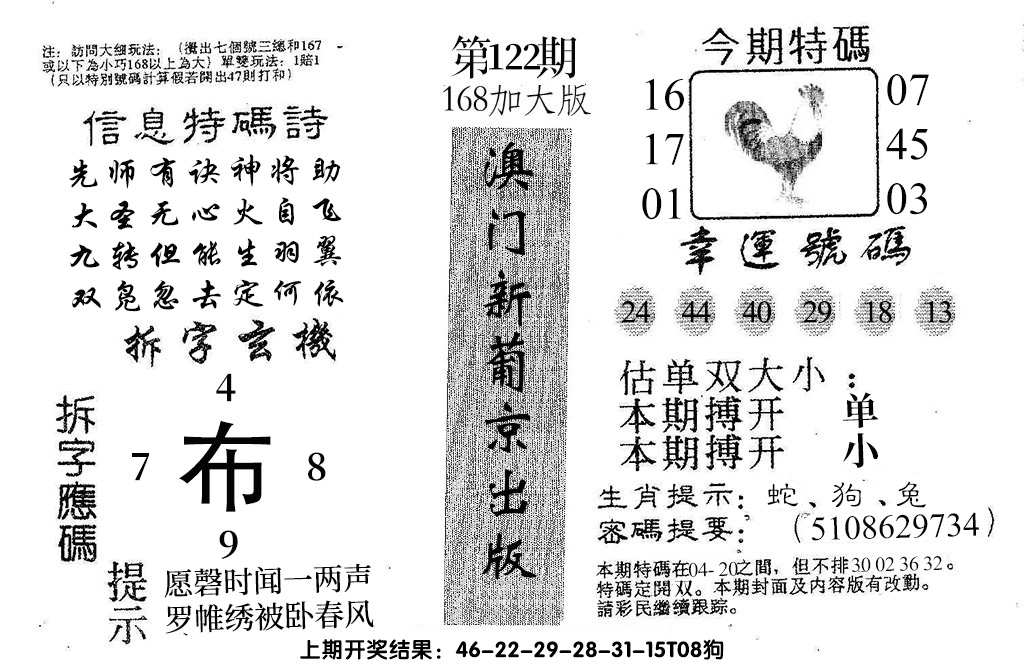 注：訪問大細玩法：（攪出七個號三總和167
或以下為小巧168以上為大）單雙玩法：1賠1
（只以特別號碼計算假若開出47則打和）
信息特碼詩
先师有诀神将助
大圣无心火自飞
九转但能生羽翼
双凫忽去定何依
拆字玄機
拆字應碼
4
7 布 8
9
提示
愿磬时闻一两声
罗帷绣被卧春风
第122期
168加大版
澳门新葡京出版
今期特碼
16 07
17 45
01 03
幸運號碼
24 44 40 29 18 13
估单双大小：
本期搏开 单
本期搏开 小
生肖提示：蛇、狗、兔
密碼提要：（5108629734）
本期特碼在04-20之間，但不排30 02 36 32。
特碼定開双。本期封面及内容版有改動。
請彩民繼續跟踪。
上期开奖结果：46-22-29-28-31-15T08狗